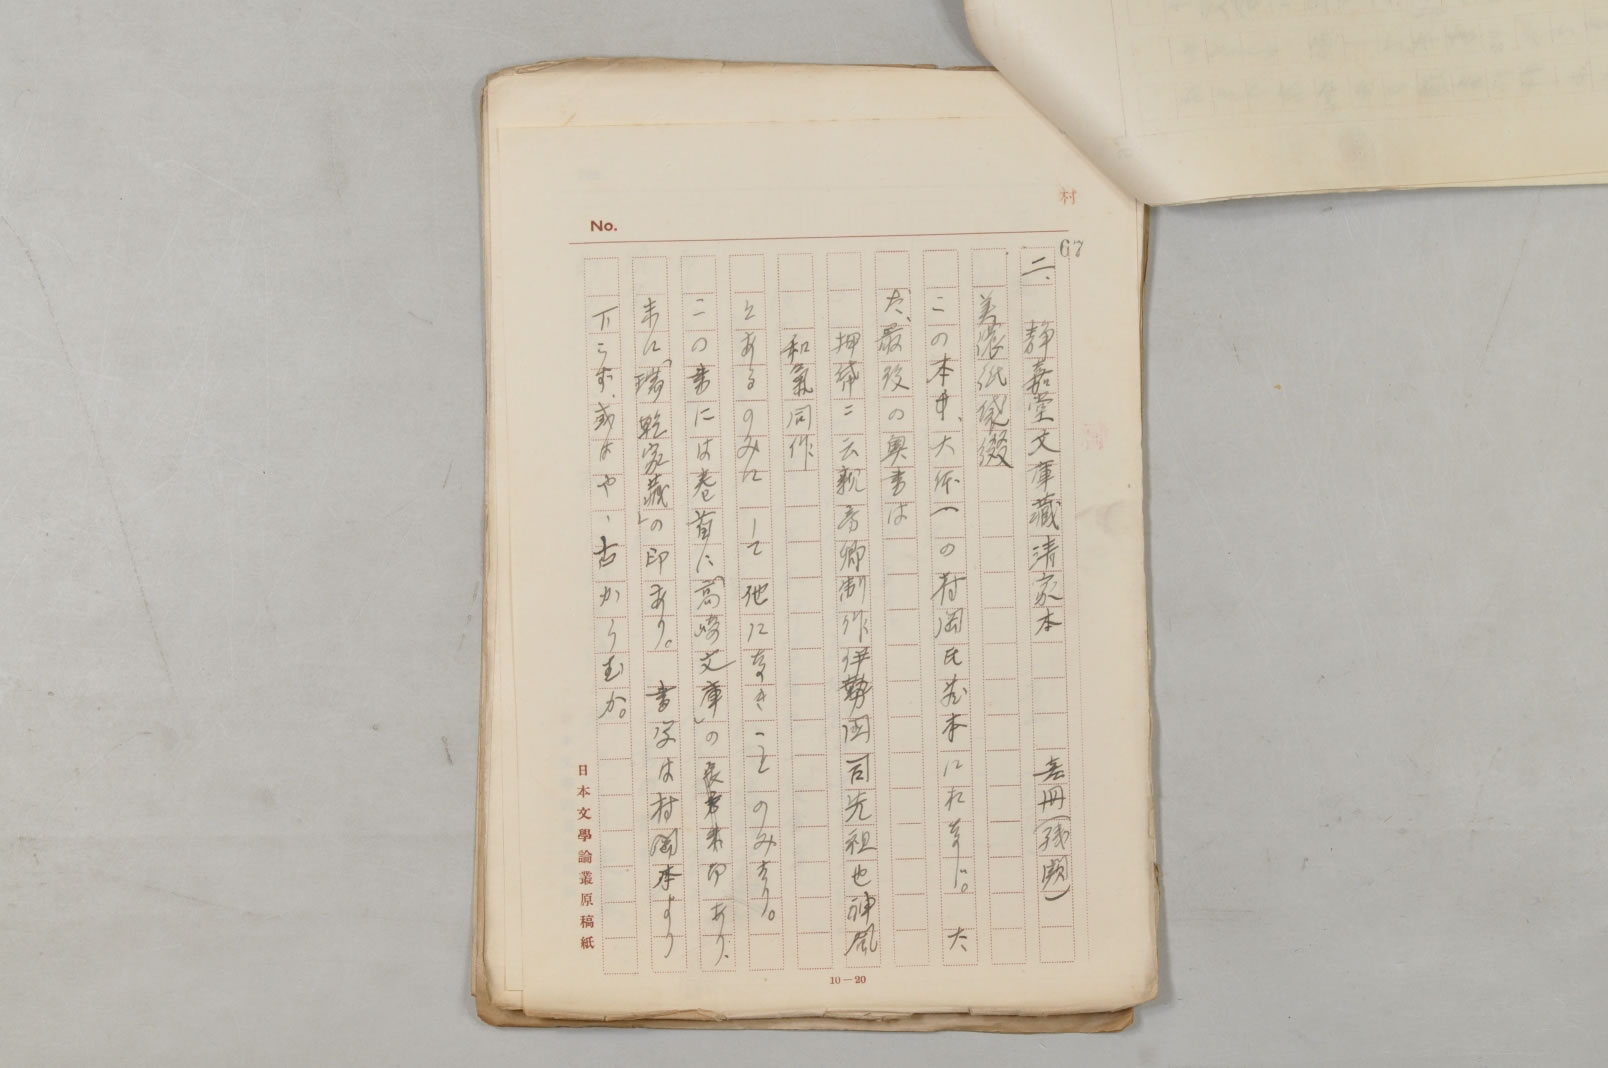 No.
村
67
二、静嘉堂文庫蔵清家本 壱冊(残闕)
美濃紙袋綴
この本は、大体一の村岡氏蔵本に同じ。た
だ、最後の奥書は
押紙ニ云親房卿制作伊勢国司先祖也神風
和氣同作
とあるのみにして他になきことのみなり。
この書には巻首に「高崎文庫」の長方朱印あり、
末に「瑞乾家蔵」の印あり。書写は村岡本より
下らず、或はやゝ古からむか。
日本文學論叢原稿紙
10—20